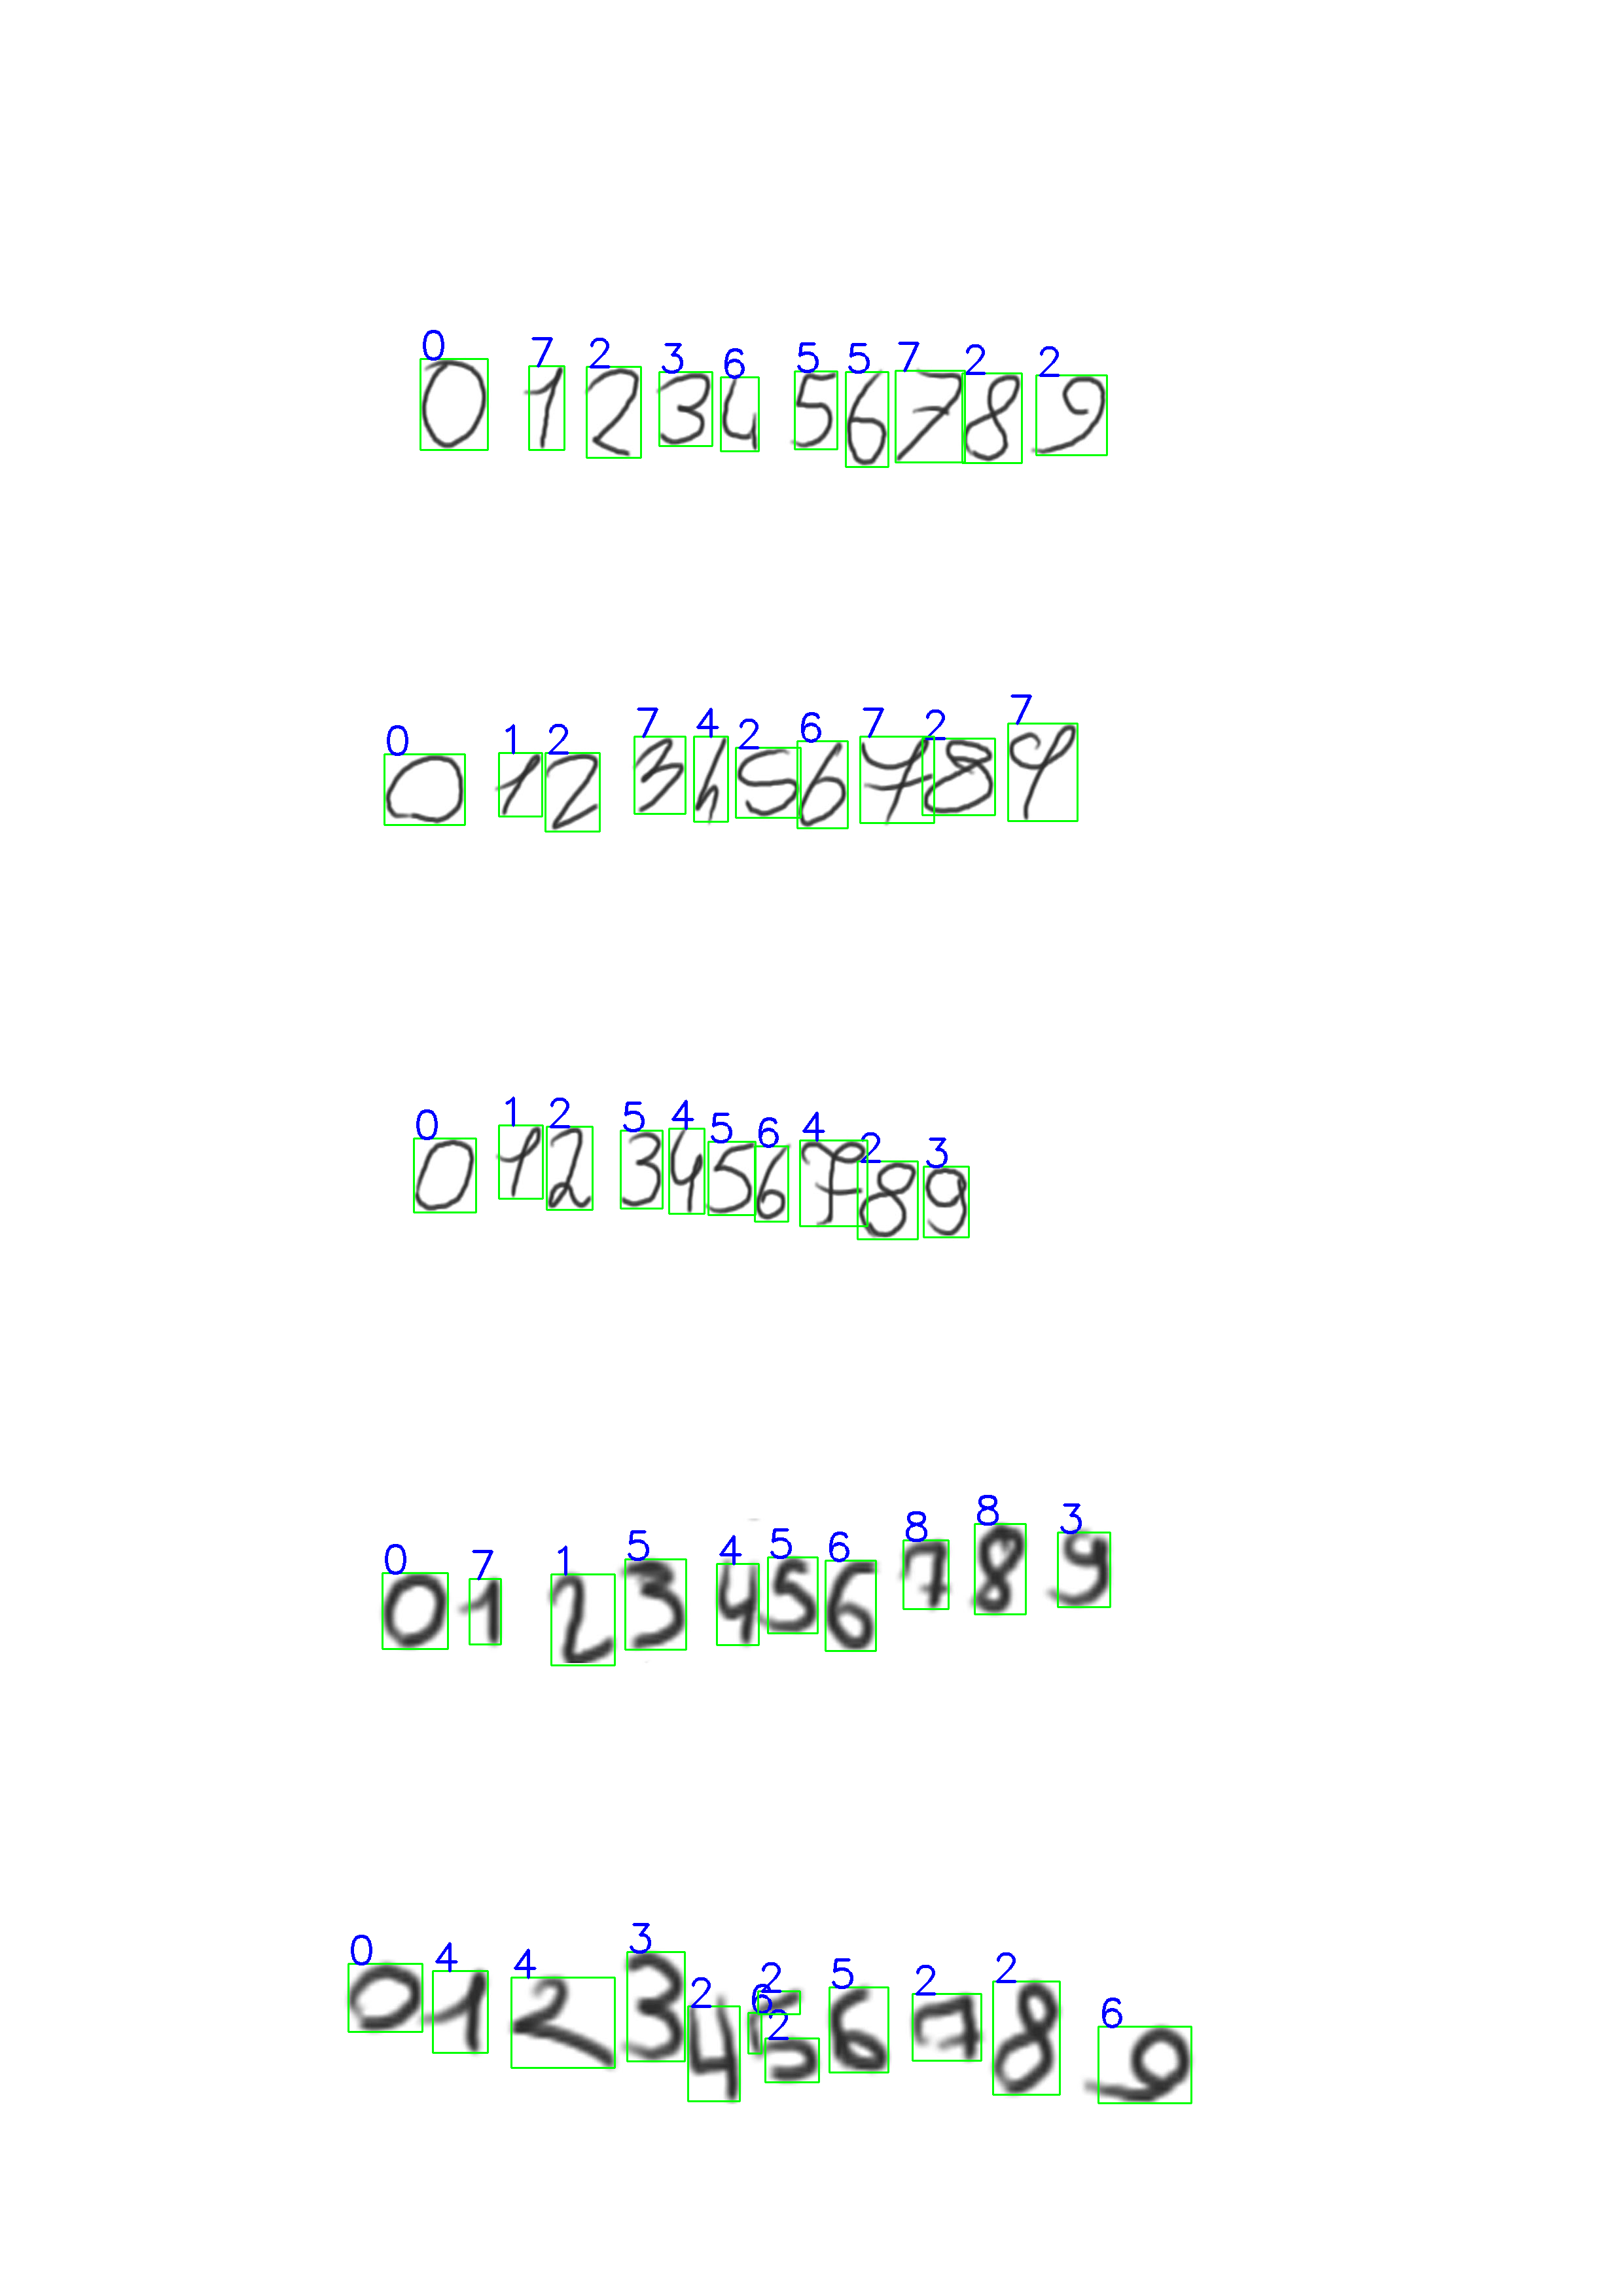 0 7 2 3 6 5 5 7 2 2
0 1 2 3 4 5 6 7 8 9
0 1 2 7 4 2 6 7 2 7
0 1 2 3 4 5 6 7 8 9
0 1 2 5 4 5 6 4 2 3
0 1 2 3 4 5 6 7 8 9
0 7 1 5 4 5 6 8 8 3
0 1 2 3 4 5 6 7 8 9
0 4 4 3 2 6 2 2 5 2 2 6
0 1 2 3 4 5 6 7 8 9